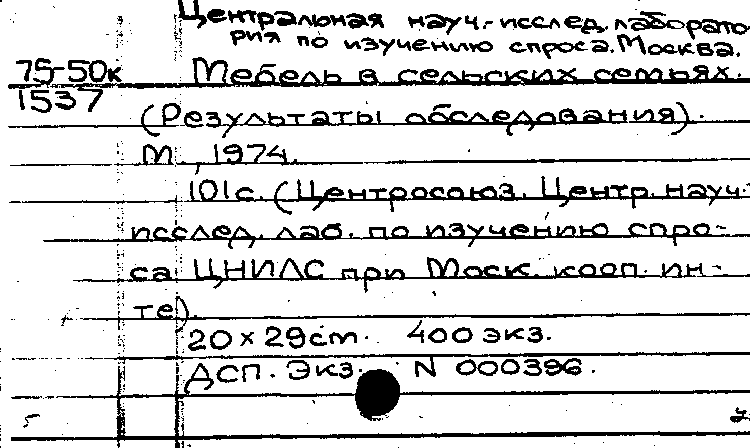 Центральная науч.-исслед. лаборато
рия по изучению спроса. Москва.
75-50к Мебель в сельских семьях.
1537
(Результаты обследования).
М., 1974.
101с. (Центросоюз. Центр. науч.
исслед. лаб. по изучению спро-
са ЦНИЛС при Моск. кооп. ин-
те).
20 x 29cm. 400 экз.
ДСП. Экз. N 000396.